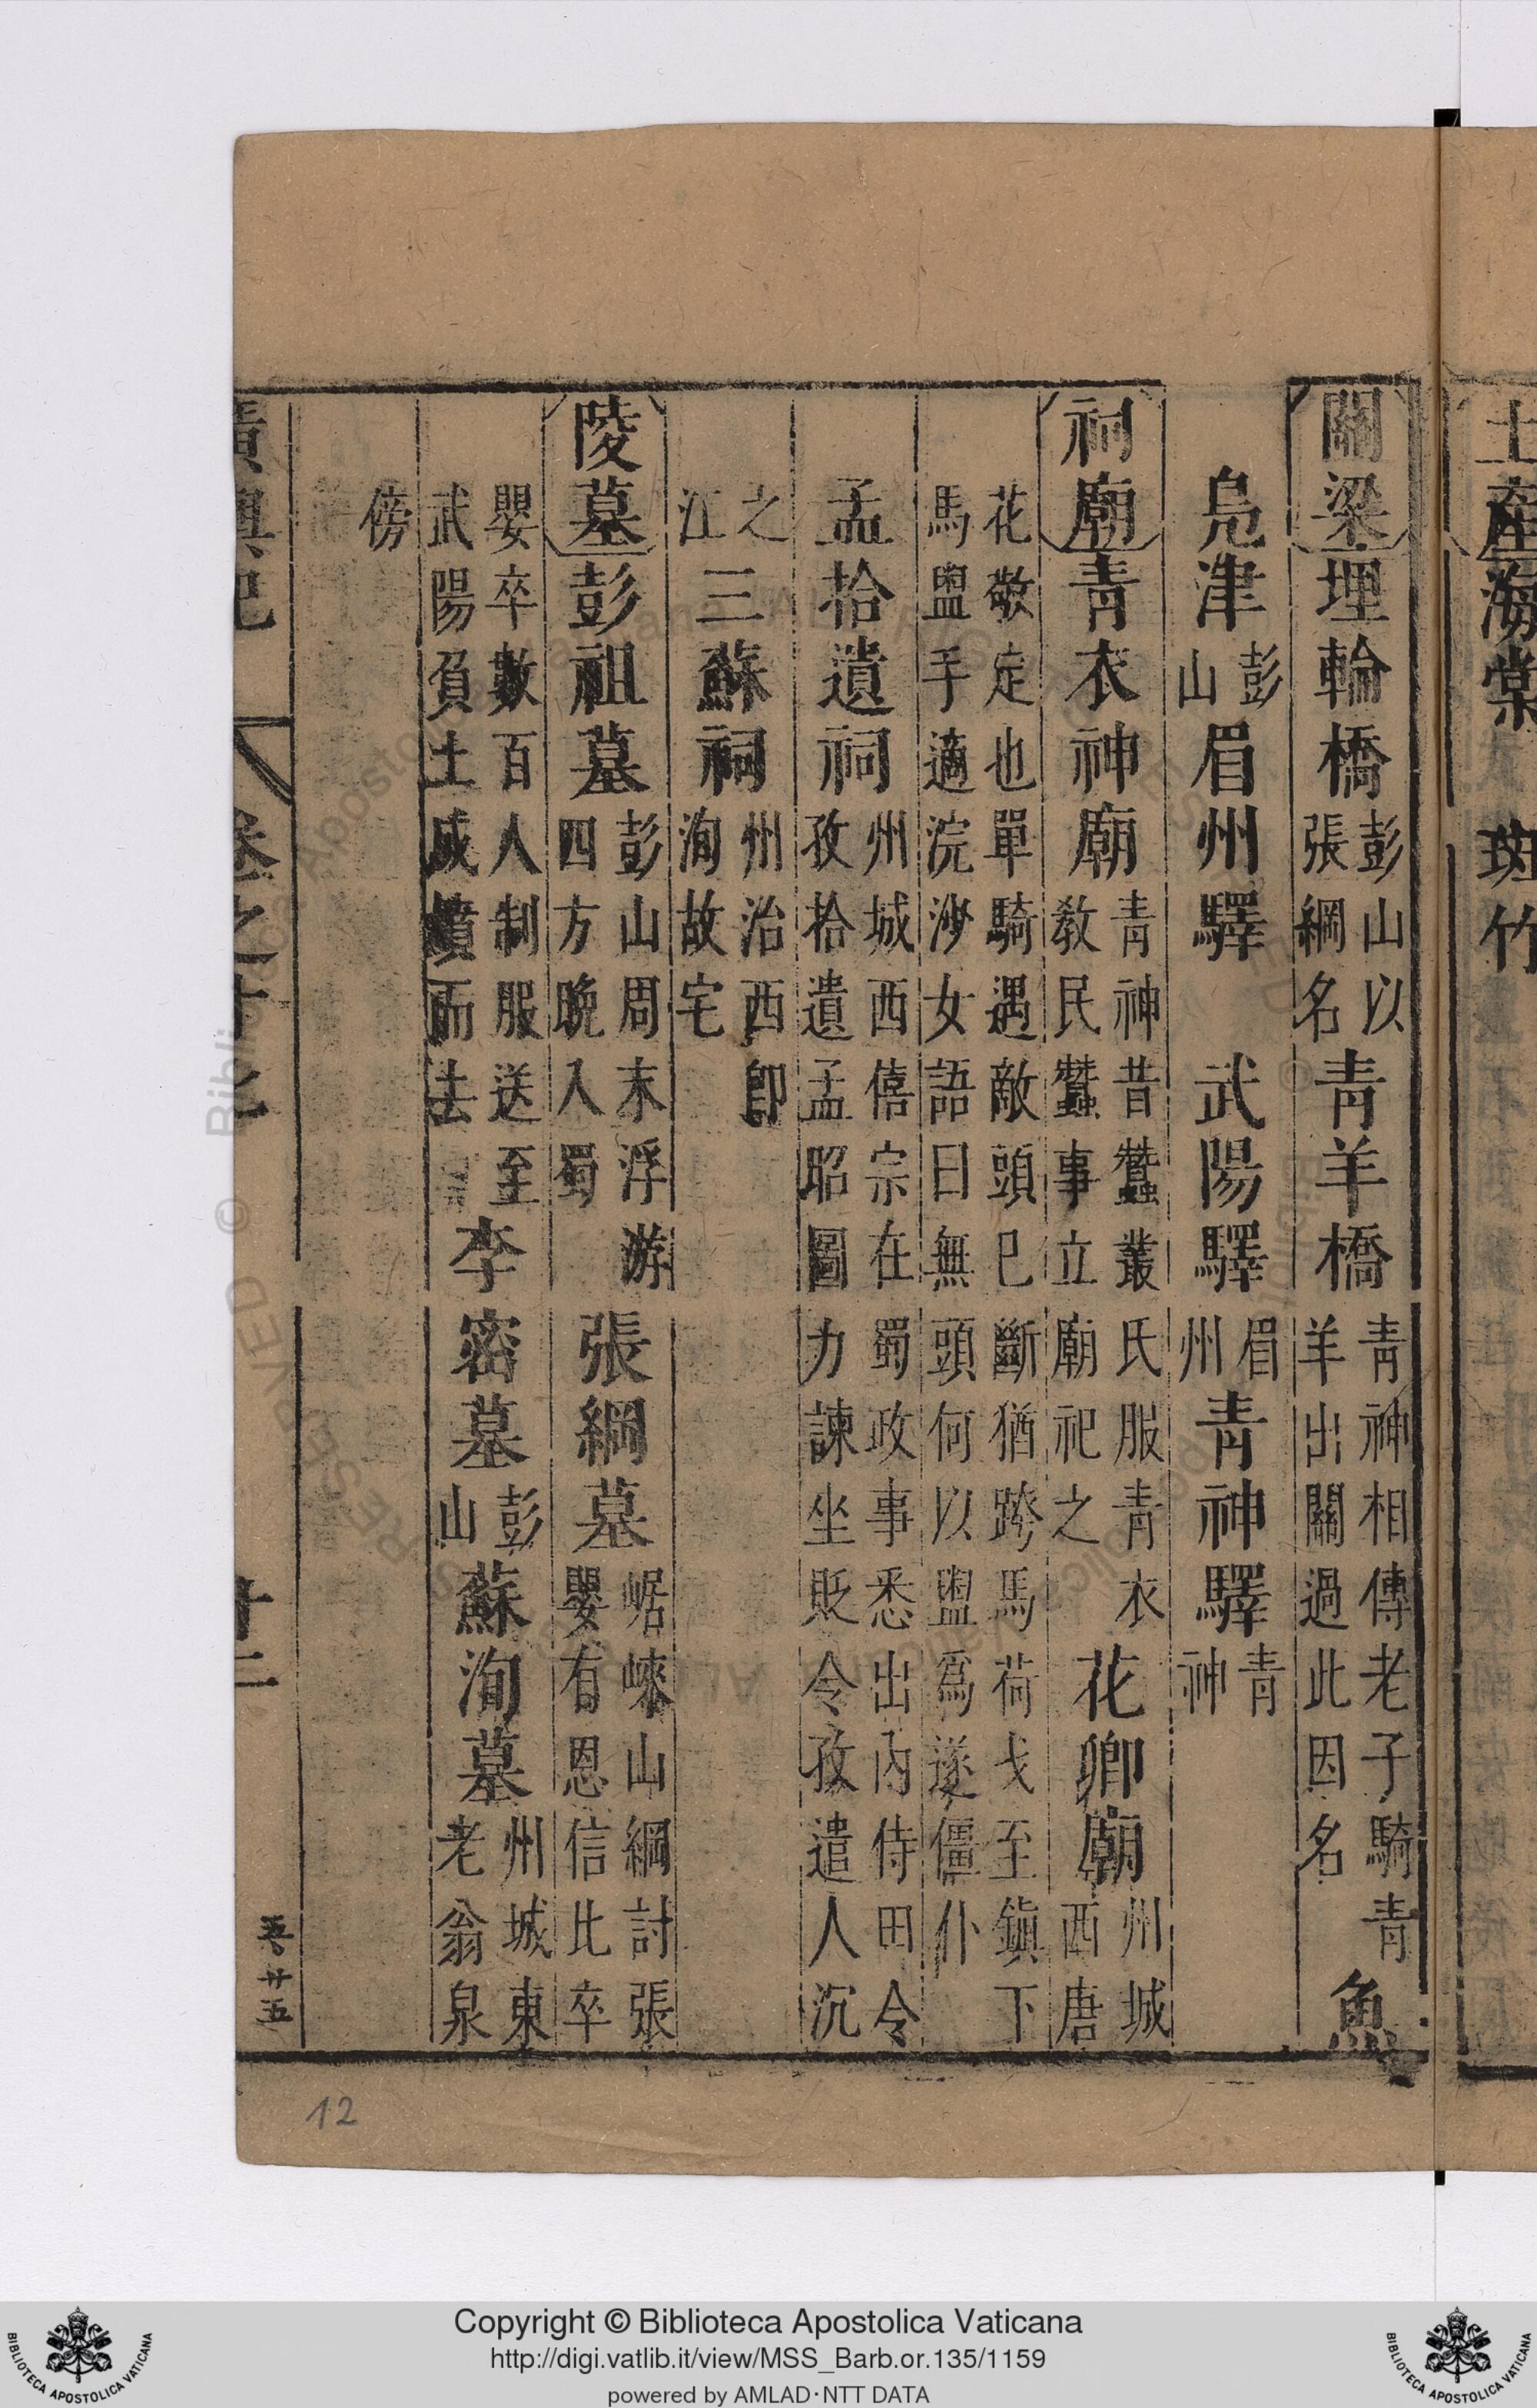 土產海棠 斑竹
關梁埋輪橋彭山以張綱名青羊橋青神相傳老子騎青羊出關過此因名魚
鳧津彭山眉州驛 武陽驛眉州青神驛青神
祠廟青衣神廟青神昔蠶叢氏服青衣教民蠶事立廟祀之花卿廟州城西唐
花敬定也單騎遇敵頭已斷猶跨馬荷戈至鎮下馬盥手適浣沙女語曰無頭何以盥爲遂僵仆
孟拾遺祠州城西僖宗在蜀政事悉出內侍田令孜拾遺孟昭圖力諫坐貶令孜遣人沉
之江三蘇祠州治西卽洵故宅
陵墓彭祖墓彭山周末浮游四方晚入蜀張綱墓崌崍山綱討張嬰有恩信比卒
嬰卒數百人制服送至武陽負土成墳而去李密墓彭山蘇洵墓州城東老翁泉
傍
廣輿記 卷之十七 廿二
五 廿五
12
Copyright © Biblioteca Apostolica Vaticana
http://digi.vatlib.it/view/MSS_Barb.or.135/1159
powered by AMLAD·NTT DATA
BIBLIOTECA APOSTOLICA VATICANA
BIBLIOTECA APOSTOLICA VATICANA